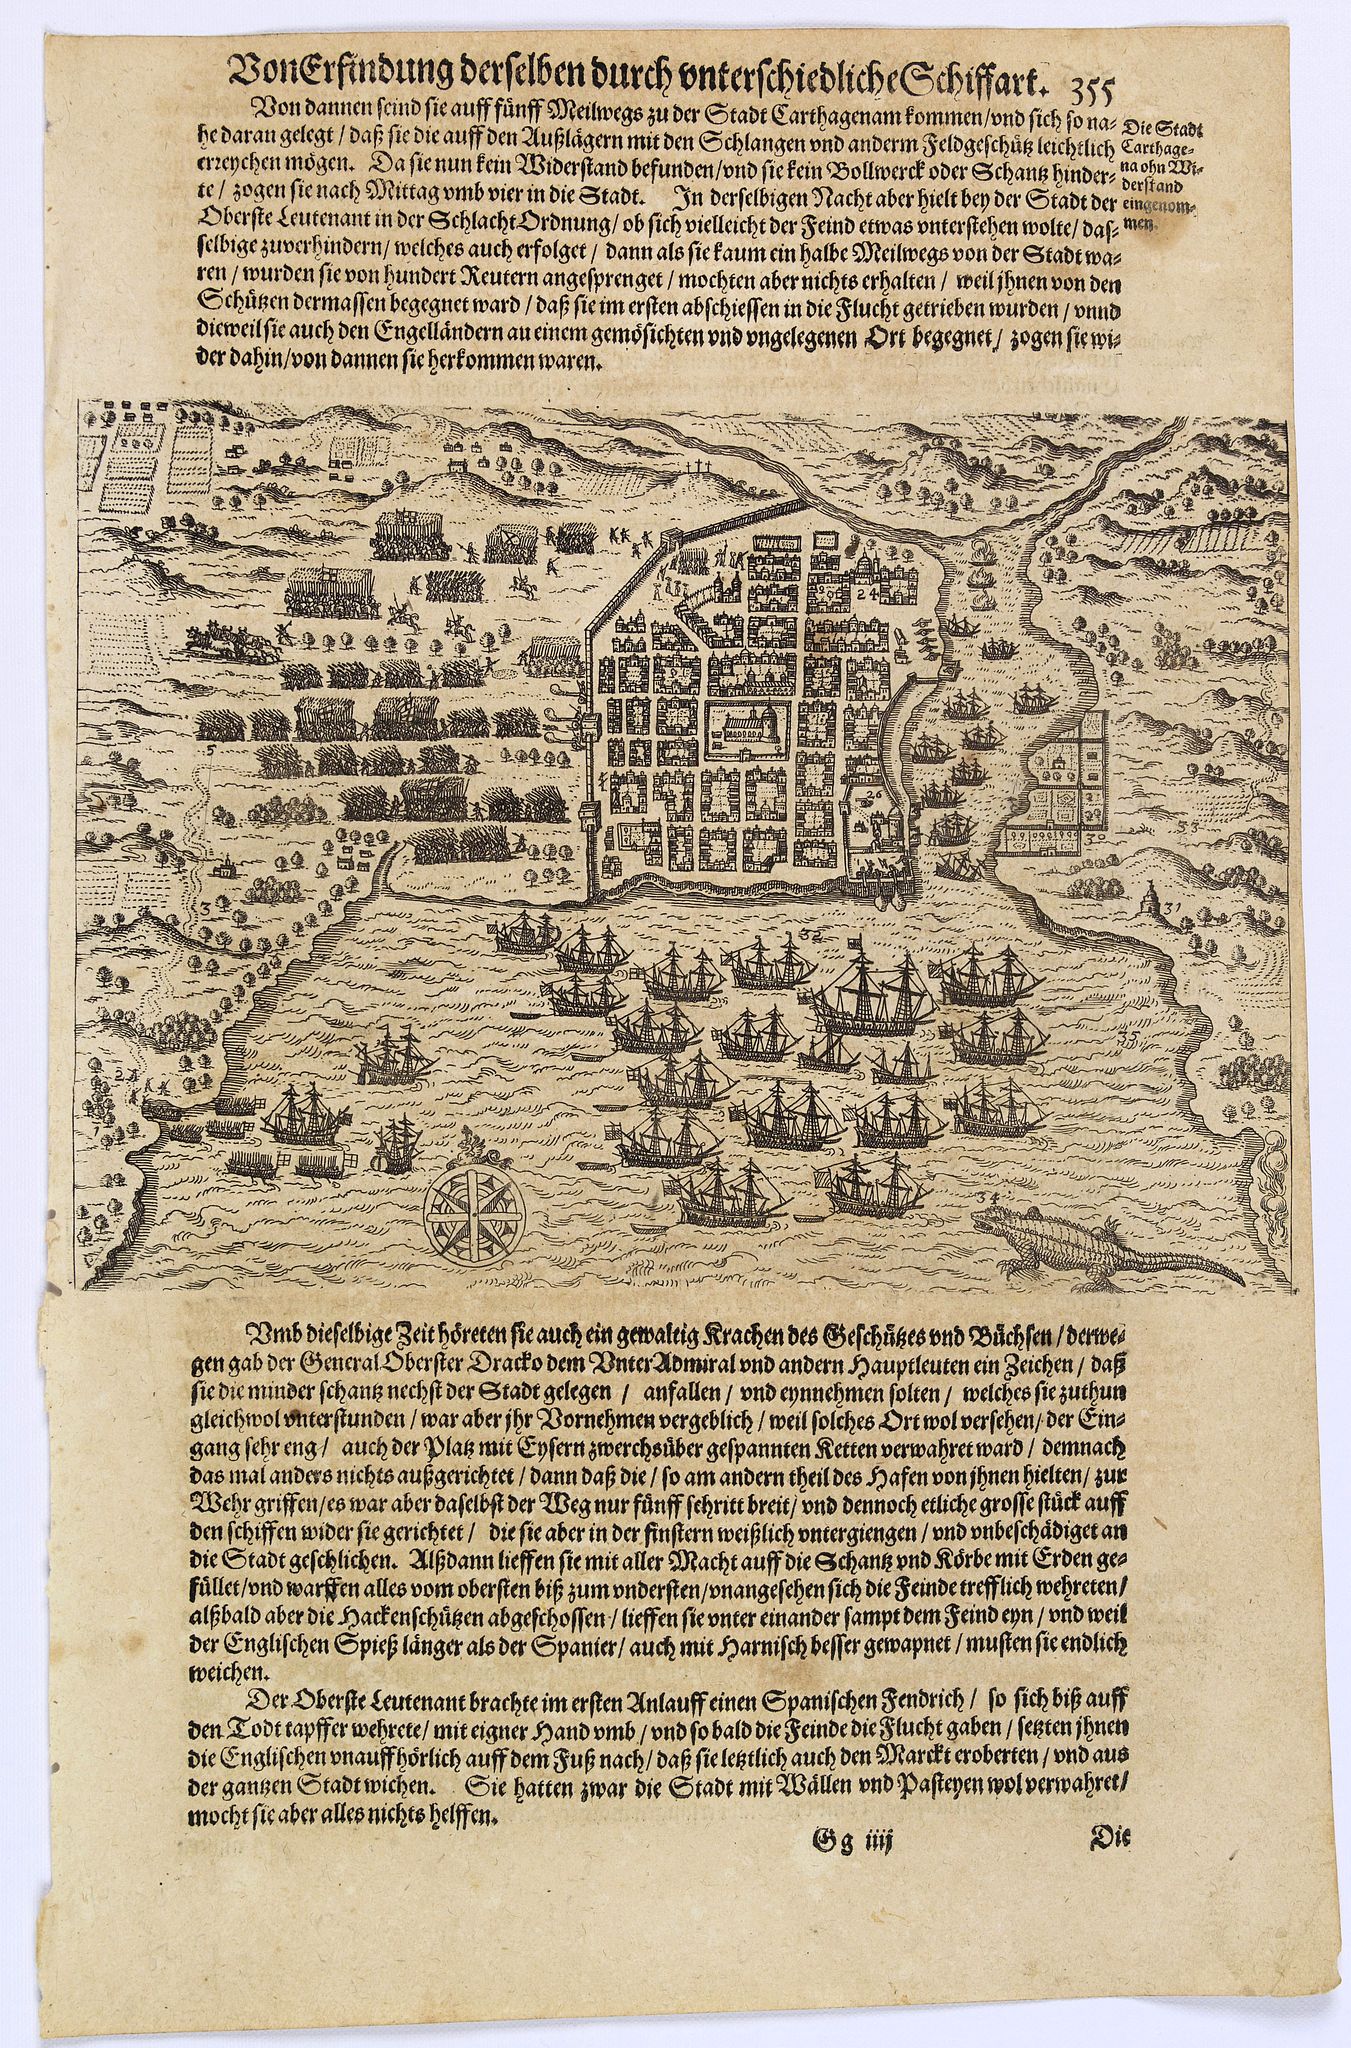 Von Erfindung derselben durch vnterschiedliche Schiffart. 355
Von dannen seind sie auff fünff Meilwegs zu der Stadt Carthagenam kommen/vnd sich so na-
he daran gelegt/daß sie die auff den Außlägern mit den Schlangen vnd anderm Feldgeschütz leichtlich
erreychen mögen. Da sie nun kein Widerstand befunden/vnd sie kein Bollwerck oder Schantz hinder-
te/zogen sie nach Mittag vmb vier in die Stadt. In derselbigen Nacht aber hielt bey der Stadt der
Oberste Leutenant in der SchlachtOrdnung/ob sich vielleicht der Feind etwas vnterstehen wolte/das-
selbige zuverhindern/welches auch erfolget/dann als sie kaum ein halbe Meilwegs von der Stadt wa-
ren/wurden sie von hundert Reutern angesprenget/mochten aber nichts erhalten/weil jhnen von den
Schützen dermassen begegnet ward/daß sie im ersten abschiessen in die Flucht getrieben wurden/vnnd
dieweil sie auch den Engelländern an einem gemösichten vnd vngelegenen Ort begegnet/zogen sie wi-
der dahin/von dannen sie herkommen waren.
Die Stadt
Carthage-
na ohn Wi-
derstand
eingenom-
men.
24
26
5
3
2
30
31
32
33
34
35
Vmb dieselbige Zeit höreten sie auch ein gewaltig Krachen des Geschützes vnd Büchsen/derwe-
gen gab der General Oberster Dracko dem VnterAdmiral vnd andern Hauptleuten ein Zeichen/daß
sie die minder schantz nechst der Stadt gelegen/anfallen/vnd eynnehmen solten/welches sie zuthun
gleichwol vnterstunden/war aber jhr Vornehmen vergeblich/weil solches Ort wol versehen/der Ein-
gang sehr eng/auch der Platz mit Eysern zwerchsüber gespannten Ketten verwahret ward/demnach
das mal anders nichts außgerichtet/dann daß die/so am andern theil des Hafen von jhnen hielten/zur
Wehr griffen/es war aber daselbst der Weg nur fünff schritt breit/vnd dennoch etliche grosse stück auff
den schiffen wider sie gerichtet/die sie aber in der finstern weißlich vntergiengen/vnd vnbeschädiget an
die Stadt geschlichen. Alßdann lieffen sie mit aller Macht auff die Schantz vnd Körbe mit Erden ge-
füllet/vnd warffen alles vom obersten biß zum vndersten/vnangesehen sich die Feinde trefflich wehreten/
alßbald aber die Hackenschützen abgeschossen/lieffen sie vnter einander sampt dem Feind eyn/vnd weil
der Englischen Spieß länger als der Spanier/auch mit Harnisch besser gewapnet/musten sie endlich
weichen.
Der Oberste Leutenant brachte im ersten Anlauff einen Spanischen Fendrich/so sich biß auff
den Todt tapffer wehrete/mit eigner Hand vmb/vnd so bald die Feinde die Flucht gaben/setzten jhnen
die Englischen vnauffhörlich auff dem Fuß nach/daß sie letztlich auch den Marckt eroberten/vnd aus
der gantzen Stadt wichen. Sie hatten zwar die Stadt mit Wällen vnd Pasteyen wol verwahret/
mocht sie aber alles nichts helffen.
Gg iiij Die